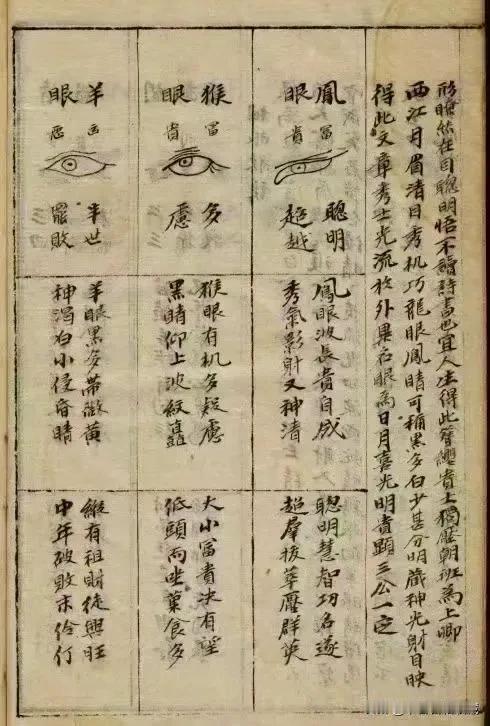 形瞭然在目聰明悟不讀詩書也宜人生得此簪纓貴士獨壓朝班為上卿
西江月眉清目秀机巧龍眼鳳睛可稱黑多白少甚分明藏神光射目映
得此文章秀士光流於外異名眼為日月喜光明貴顯三公一定
鳳富
眼貴
聰明
超越
鳳眼波長貴自成
秀氣影射又神清
聰明慧智功名遂
超羣拔萃壓群英
猴富
眼貴
多
慮
猴眼有机多疑慮
黑睛仰上波紋矗
大小富貴决有望
低頭而坐菓食多
羊凶
眼惡
半世
罷敗
羊眼黑多帶微黃
神渴白小侵昏睛
縱有祖財徒興旺
中年破敗末伶仃